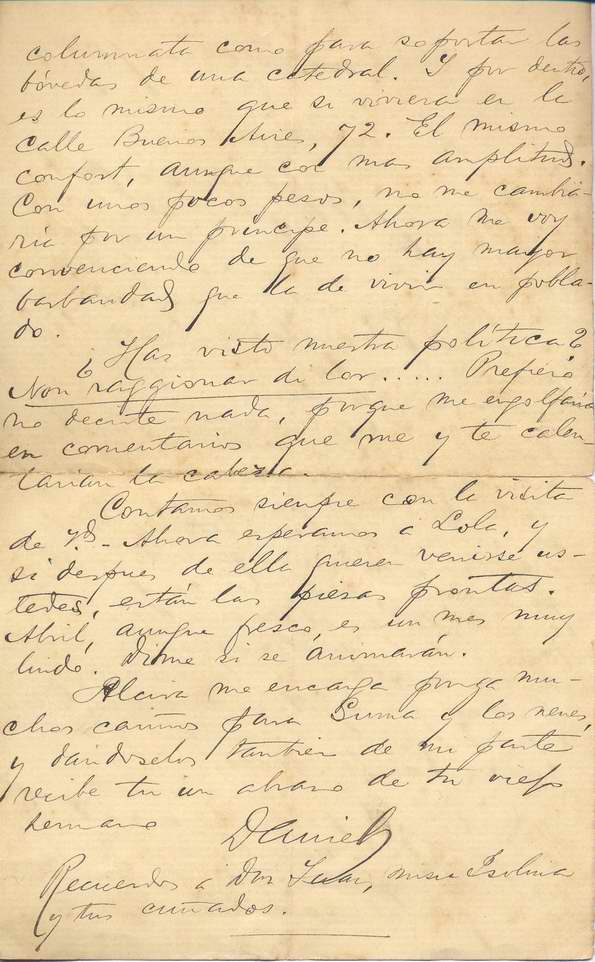 columnata como para soportar las
bóvedas de una catedral. Y por dentro,
es lo mismo que si viviera en la
calle Buenos Aires, 72. El mismo
confort, aunque con mas amplitud.
Con unos pocos pesos, no me cambia-
ría por un principe. Ahora me voy
convenciendo de que no hay mayor
barbaridad que la de vivir en pobla-
do.
¿Has visto nuestra política?
Non raggionar di lor..... Prefiero
no decirte nada, porque me engolfaría
en comentarios que me y te calen-
tarían la cabeza.
Contamos siempre con la visita
de Vs. Ahora esperamos a Lola, y
si despues de ella quieren venirse us-
tedes, están las piezas prontas.
Abril, aunque fresco, es un mes muy
lindo. Dime si se animarán.
Alcira me encarga ponga mu-
chos cariños para Suma y los nenes,
y dándoselos tambien de mi parte
recibe tu un abrazo de tu viejo
hermano Daniel
Recuerdos á Don Juan, misia Isolina
y tus cuñados.